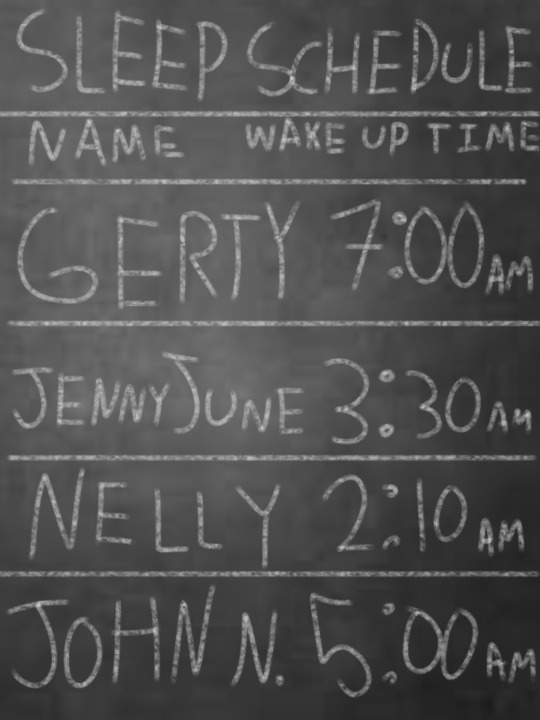 SLEEP SCHEDULE
NAME WAKE UP TIME
GERTY 7:00 AM
JENNY JUNE 3:30 AM
NELLY 2:10 AM
JOHN N. 5:00 AM